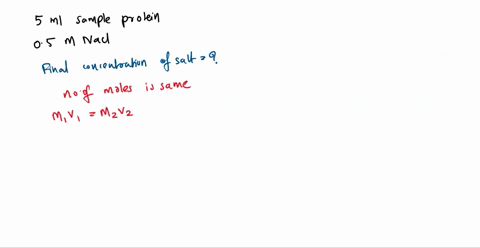 5 ml sample protein
0.5 M Nacl
Final concentration of salt = ?
no.of moles is same
M₁V₁ = M₂V₂